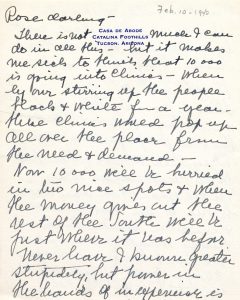 Feb. 10 - 1940
Rose darling -
CASA DE ADOBE
CATALINA FOOTHILLS
TUCSON, ARIZONA
There is not much I can
do in all this - but it makes
me sick to think that 10 000
is going into clinics - When
by our stirring up the people
black & white for a year -
these clinics would pop up
all over the place from
the need & demand -
Now 10 000 will be buried
in two nice spots & when
the money gives out the
rest of the South will be
just where it was before
Never have I known greater
stupidity, but power in
the hands of inexperience is